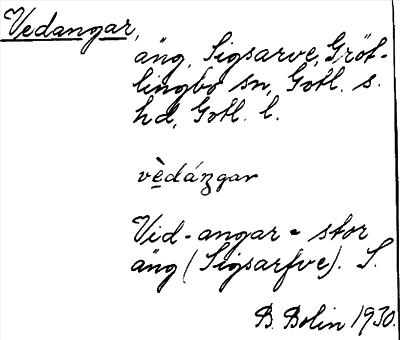 Vedangar,
äng, Sigsarve, Gröt-
lingbo sn, Gotl. s.
hd, Gotl. l.
vèdáŋgar
Vid-angar = stor
äng (Sigsarfve). S.
B. Bolin 1930.